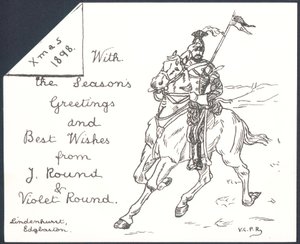 Xmas
1898.
With
the Season's
Greetings
and
Best Wishes
from
J. Round
&
Violet Round.
Lindenhurst,
Edgbaston.
V.L.P.R.